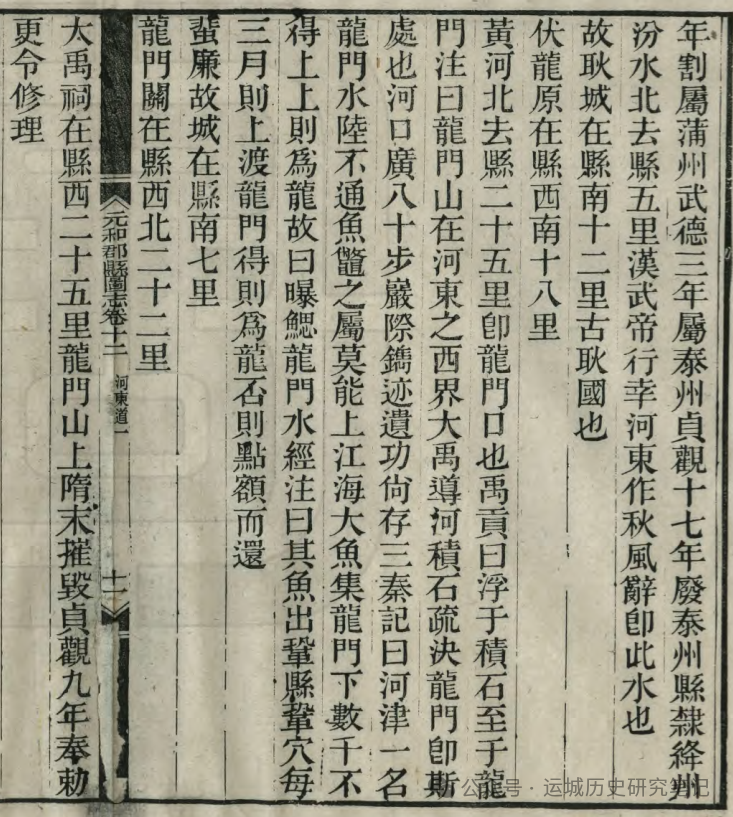 年割屬蒲州武德三年屬泰州貞觀十七年廢泰州縣隸絳州
汾水北去縣五里漢武帝行幸河東作秋風辭卽此水也
故耿城在縣南十二里古耿國也
伏龍原在縣西南十八里
黃河北去縣二十五里卽龍門口也禹貢曰浮于積石至于龍
門注曰龍門山在河東之西界大禹導河積石疏決龍門卽斯
處也河口廣八十步巖際鐫迹遺功尙存三秦記曰河津一名
龍門水陸不通魚鼈之屬莫能上江海大魚集龍門下數千不
得上上則爲龍故曰曝鰓龍門水經注曰其魚出鞏縣鞏穴每
三月則上渡龍門得則爲龍否則點額而還
蜚廉故城在縣南七里
龍門關在縣西北二十二里
元和郡縣圖志卷十二 河東道一 十一
大禹祠在縣西二十五里龍門山上隋末摧毀貞觀九年奉勅
更令修理
公众号·运城历史研究笔记